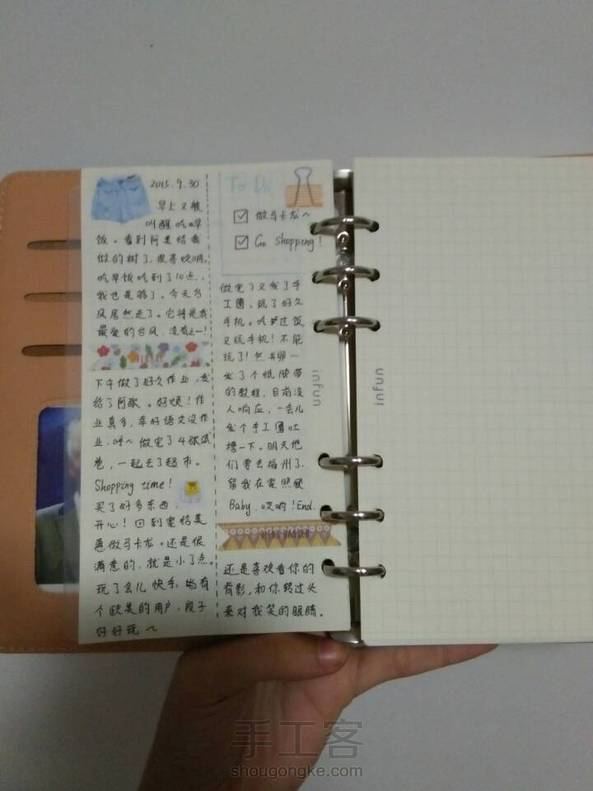 2015.9.30
早上又被
叫醒吃早
饭。看到阿美给我
做的树了,很喜欢啊。
吃早饭吃到了10点,
我也是够了。今天台
风居然走了。它将是我
最爱的台风,没有之一!
下午做了好久作业,发
给了阿歌。好烦!作
业真多,幸好语文没作
业,呼~ 做完了4张试
卷,一起去了超市。
Shopping time!
买了好多东西
开心!回到家给美
美做马卡龙。还是很
满意的,就是小了点。
玩了会儿快手,
个欧美的用户,段子
好好玩~
To Do
做马卡龙~
Go shopping!
做完了又发了手
工圈,玩了好久
手机。吃过饭
又玩手机!不能
玩了!
发了个纸胶带
的教程,目前没
人响应,一会儿
发个手工圈吐
槽一下。明天他
们要去福州了,
留我在家照顾
Baby.哎哟!End.
还是喜欢看你的
背影,和你转过头
来对我笑的眼睛。
infun
infun
手工客
shougongke.com